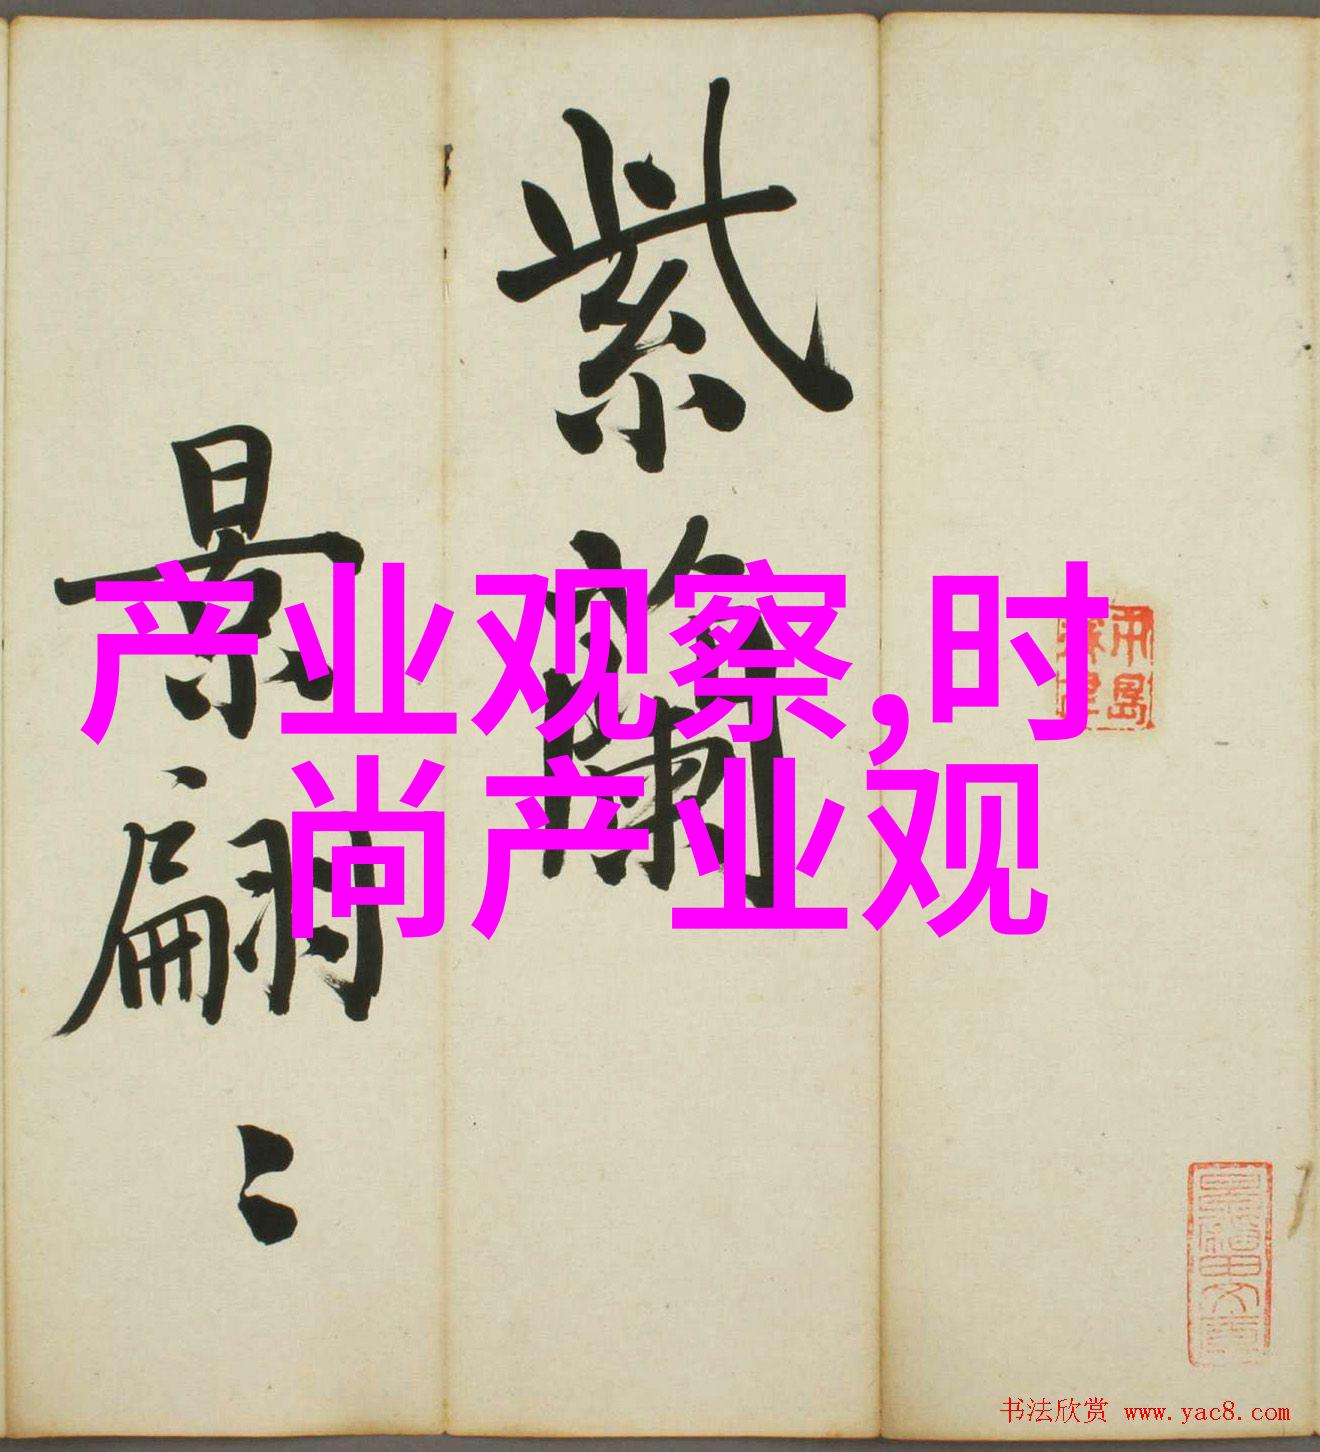 产业观察,时
尚产业观
紫蘭
景翩〻
书法欣赏 www.yac8.com